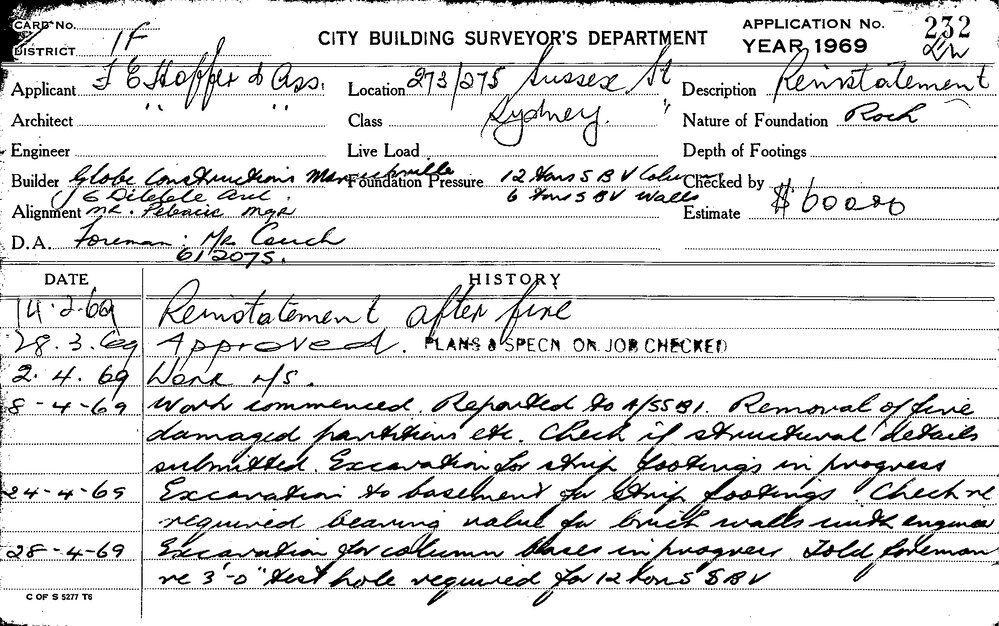 CARD No.
DISTRICT 1F
CITY BUILDING SURVEYOR'S DEPARTMENT
APPLICATION No. 232
YEAR 1969
Applicant F E Hoffer & Ass. Location 273/275 Sussex St Description Reinstatement
Architect " " Class Sydney. Nature of Foundation Rock
Engineer Live Load Depth of Footings
Builder Globe Constructions Marrickville Foundation Pressure 12 tons S B V Checked by
6 tons S B V Walls
Alignment Mr. Mgr Estimate $60000
D.A. Foreman: Mr Couch
612075.
DATE HISTORY
14.2.69 Reinstatement after fire
28.3.69 Approved. PLANS & SPECN. ON JOB CHECKED
2.4.69 Work n/s.
8-4-69 Work commenced. Reported to A/SSBI. Removal of fire
damaged partitions etc. Check if structural details
submitted. Excavation for strip footings in progress
24-4-69 Excavation to basement for strip footings. Check re
required bearing value for brick walls with engineer
28-4-69 Excavation for column bases in progress. Told foreman
re 3'-0" test hole required for 12 tons S B V
C OF S 5277 T6